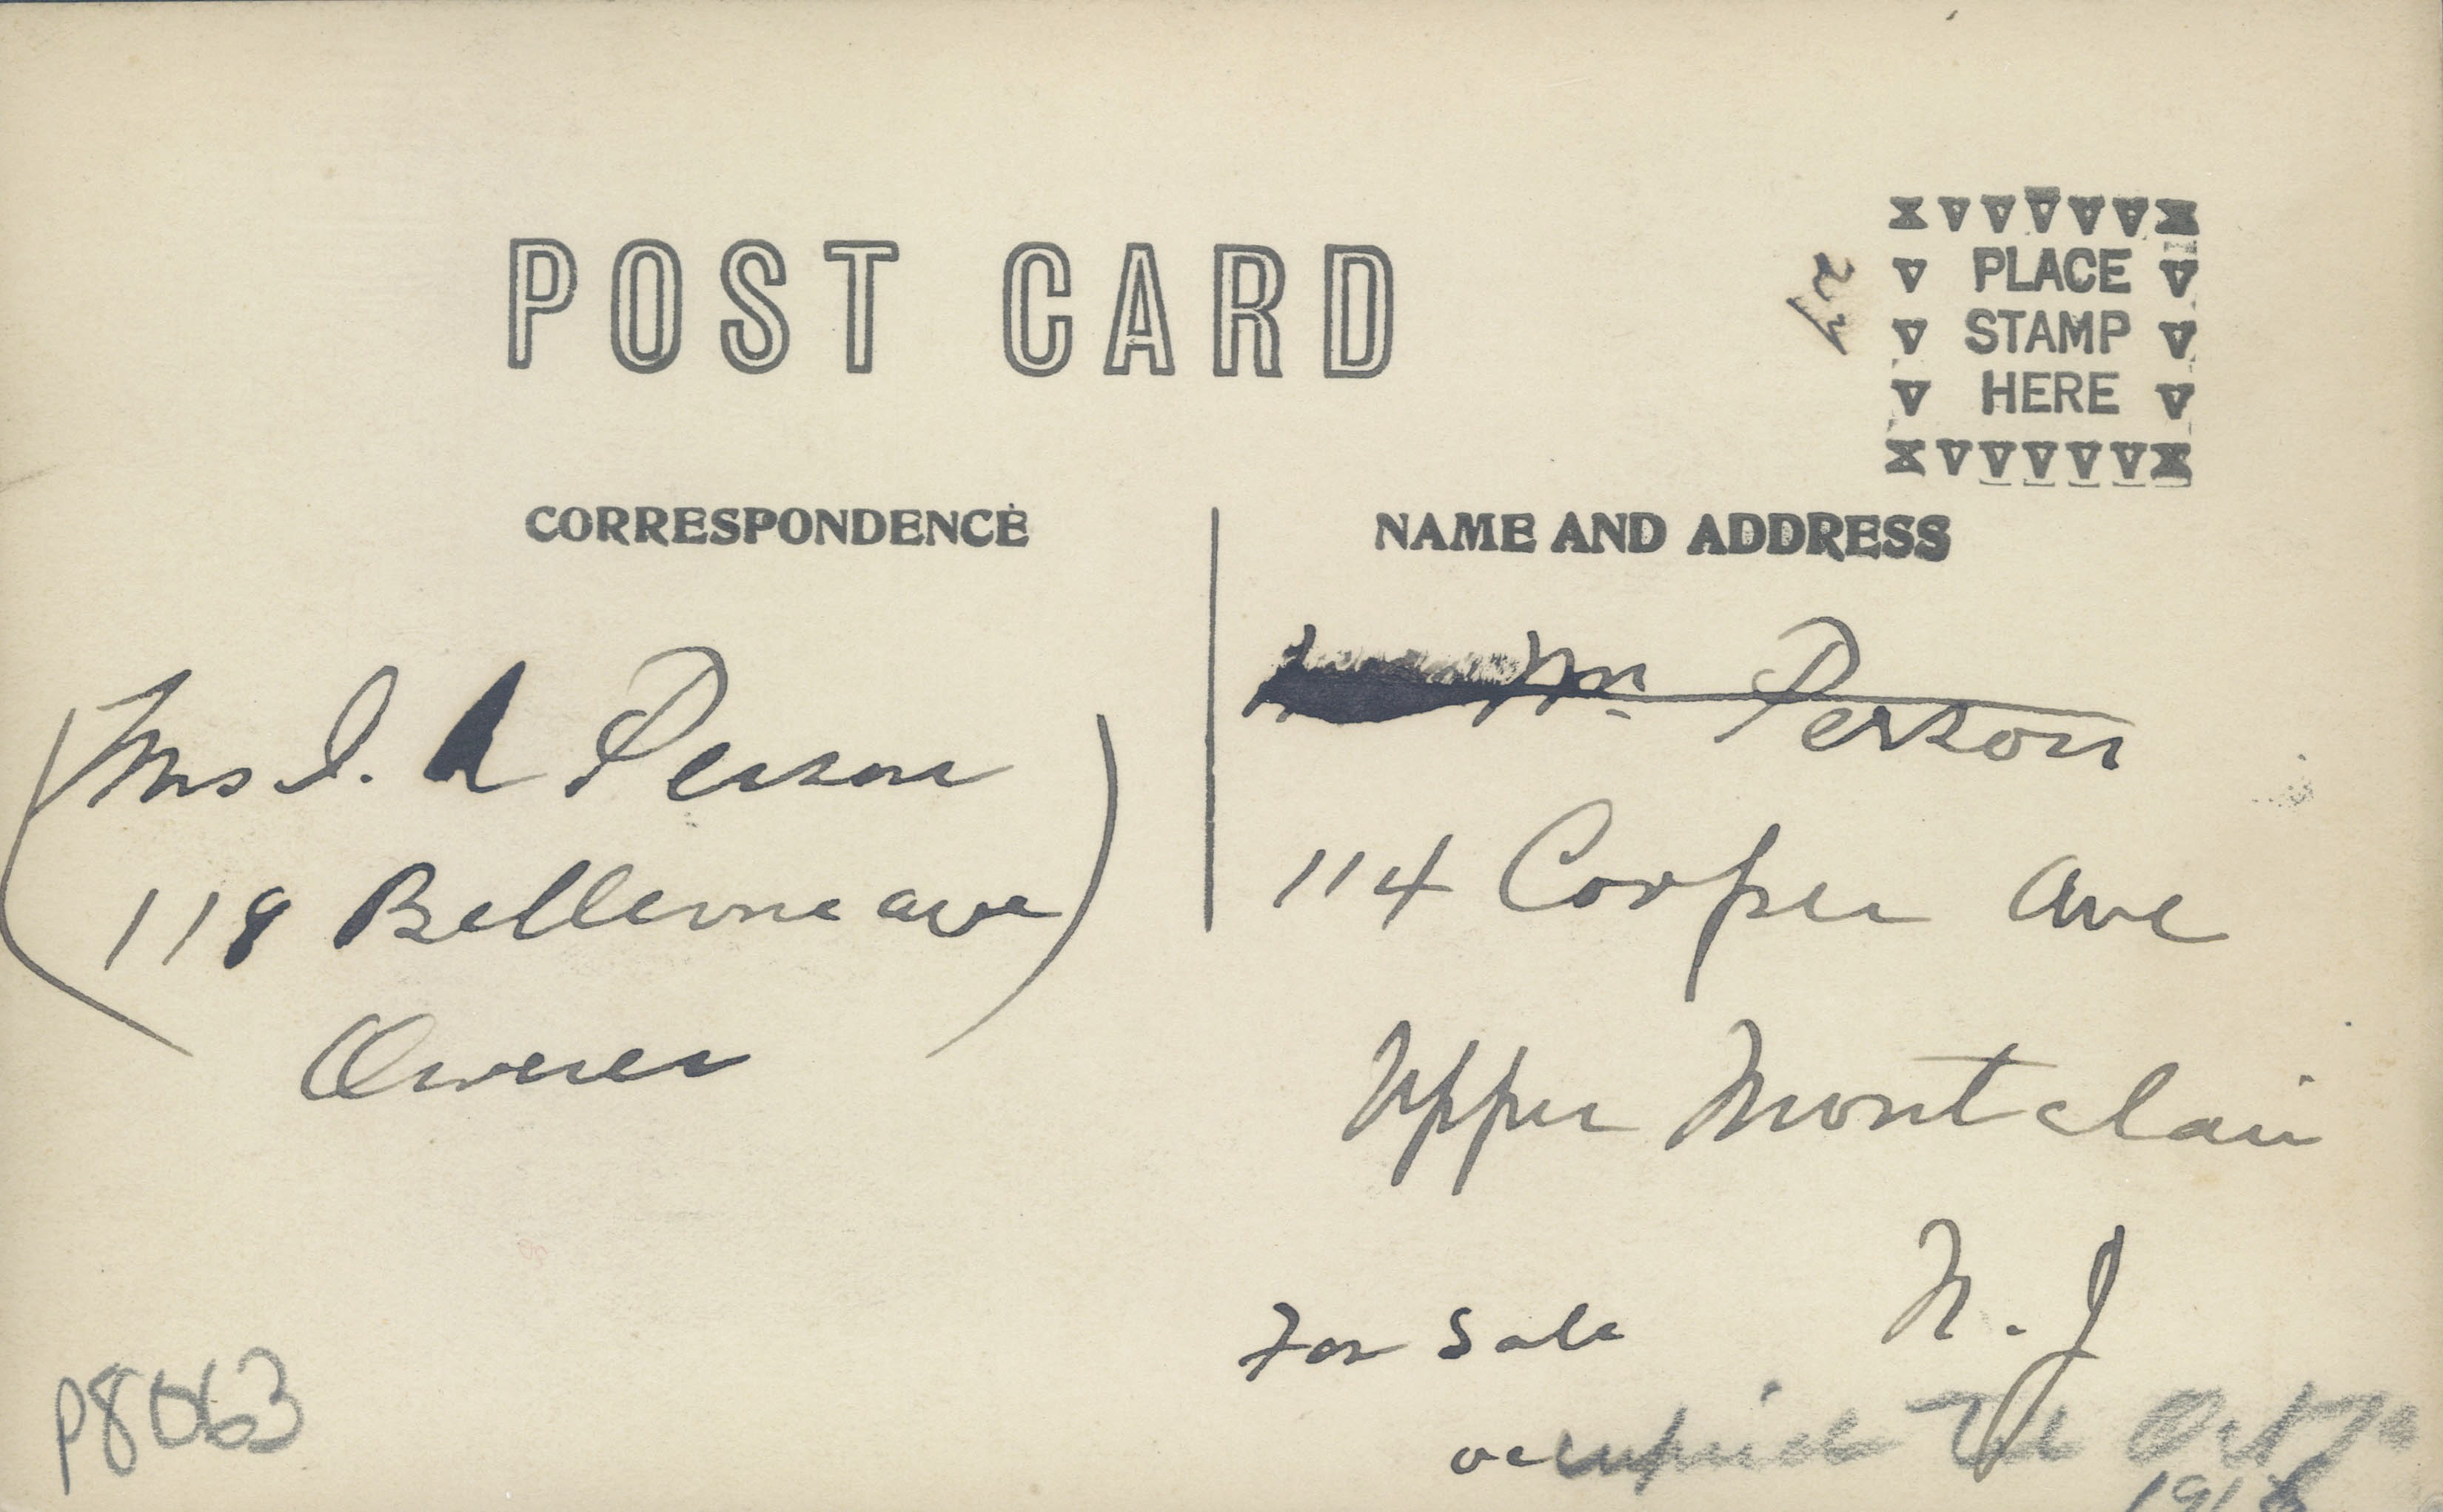 POST CARD
PLACE
STAMP
HERE
CORRESPONDENCE
NAME AND ADDRESS
Mrs I. Person
118 Bellevue ave
Owner
Mr. Person
114 Cooper Ave
Upper Montclair
N. J
For Sale
occupied Till Oct
1918
P8063